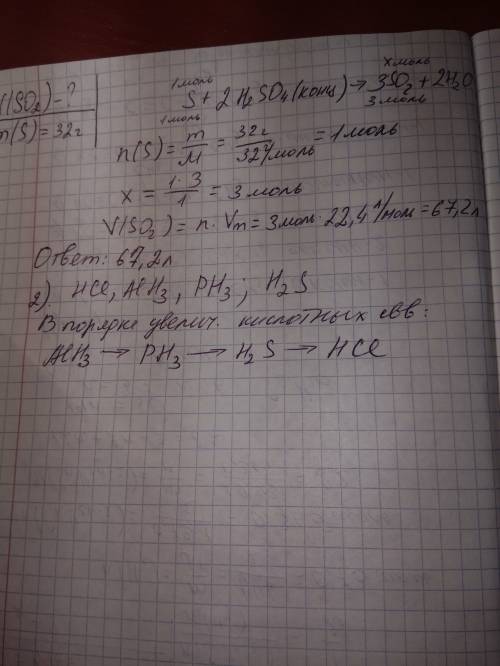 V(SO₂) - ?
m(S) = 32г
1 моль х моль
S + 2H₂SO₄ (конц) → 3SO₂ + 2H₂O
1 моль 3 моль
n(S) = m/M = 32г/32г/моль = 1 моль
x = 1·3/1 = 3 моль
V(SO₂) = n · Vm = 3 моль · 22,4 л/моль = 67,2 л
Ответ: 67,2 л
2) HCl, AlH₃, PH₃; H₂S
В порядке увелич. кислотных свв:
AlH₃ → PH₃ → H₂S → HCl